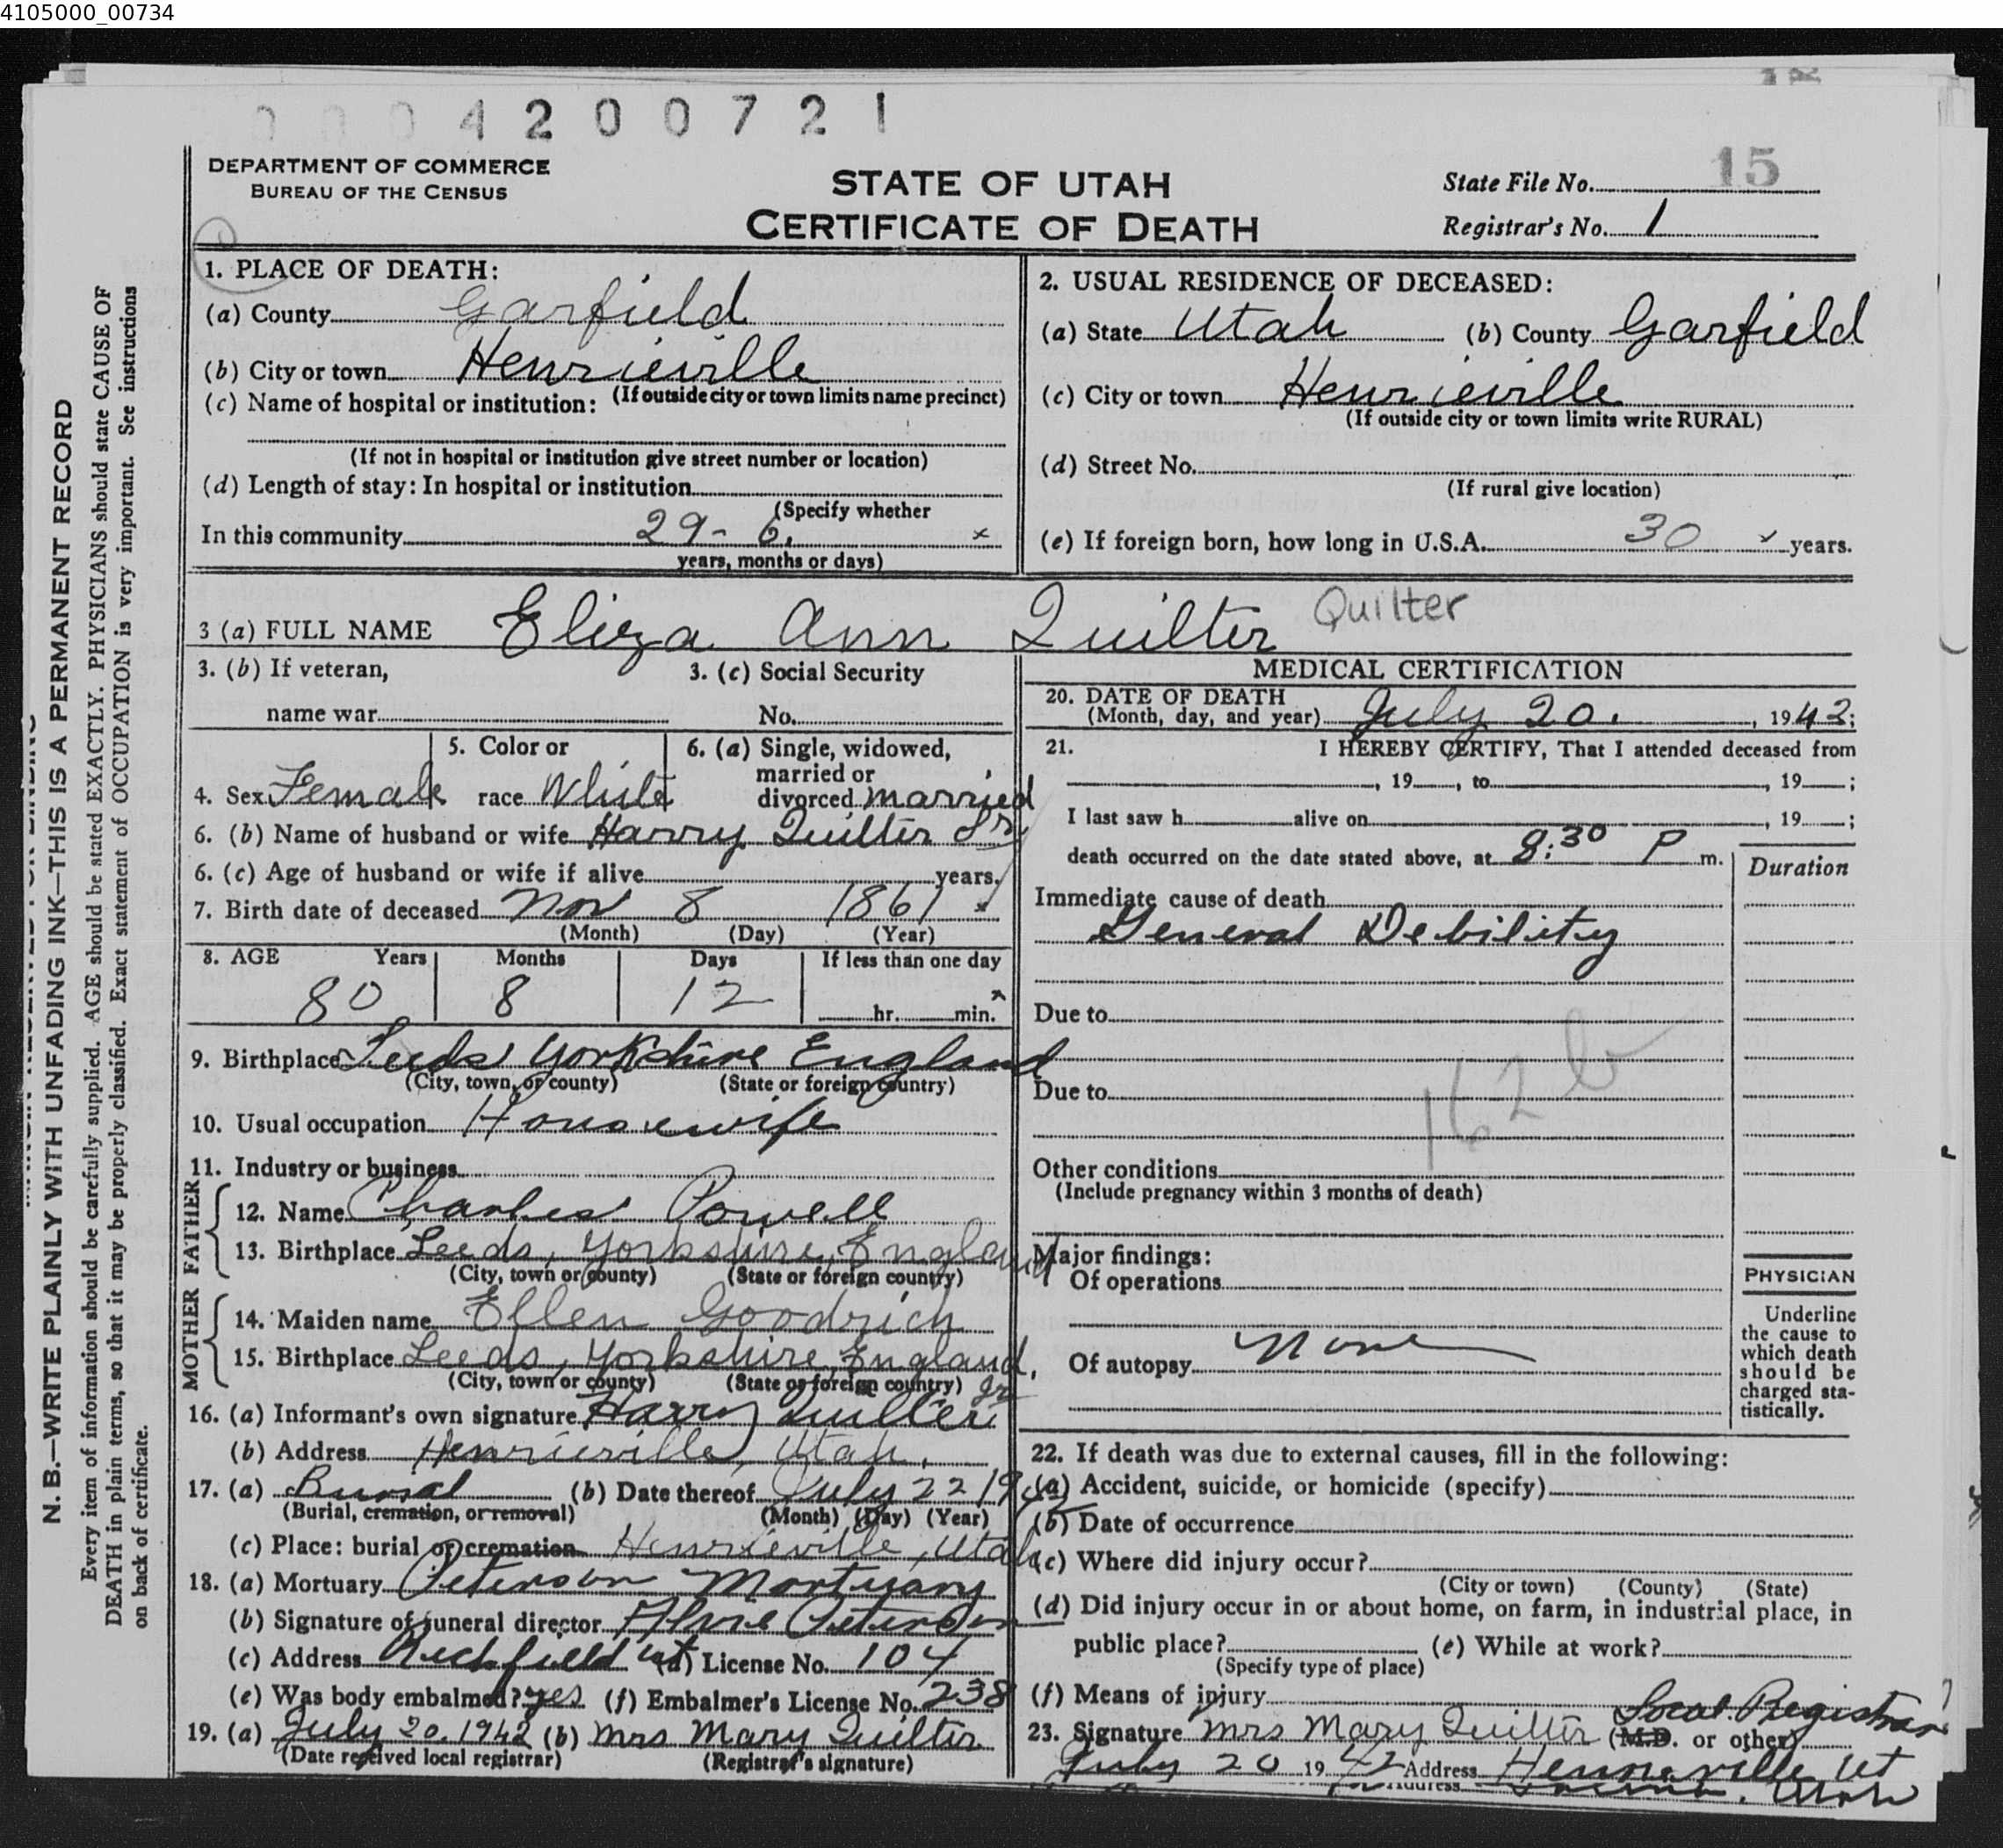 4105000_00734
0004200721
DEPARTMENT OF COMMERCE
BUREAU OF THE CENSUS
STATE OF UTAH
CERTIFICATE OF DEATH
State File No. 15
Registrar's No. 1
N. B.—WRITE PLAINLY WITH UNFADING INK—THIS IS A PERMANENT RECORD
Every item of information should be carefully supplied. AGE should be stated EXACTLY. PHYSICIANS should state CAUSE OF
DEATH in plain terms, so that it may be properly classified. Exact statement of OCCUPATION is very important. See instructions
on back of certificate.
1. PLACE OF DEATH:
(a) County Garfield
(b) City or town Henrieville
(If outside city or town limits name precinct)
(c) Name of hospital or institution:
(If not in hospital or institution give street number or location)
(d) Length of stay: In hospital or institution
(Specify whether
In this community 29-6.
years, months or days)
2. USUAL RESIDENCE OF DECEASED:
(a) State Utah (b) County Garfield
(c) City or town Henrieville
(If outside city or town limits write RURAL)
(d) Street No.
(If rural give location)
(e) If foreign born, how long in U.S.A. 30 years.
3 (a) FULL NAME Eliza Ann Quilter Quilter
3. (b) If veteran,
name war
3. (c) Social Security
No.
4. Sex Female
5. Color or
race White
6. (a) Single, widowed,
married or
divorced married
6. (b) Name of husband or wife Harry Quilter Sr
6. (c) Age of husband or wife if alive years.
7. Birth date of deceased Nov 8 1861
(Month) (Day) (Year)
8. AGE Years Months Days If less than one day
80 8 12 hr. min.
9. Birthplace Leeds Yorkshire England
(City, town, or county) (State or foreign country)
10. Usual occupation Housewife
11. Industry or business
FATHER
12. Name Charles Powell
13. Birthplace Leeds, Yorkshire, England
(City, town or county) (State or foreign country)
MOTHER
14. Maiden name Ellen Goodrich
15. Birthplace Leeds, Yorkshire, England,
(City, town or county) (State or foreign country)
16. (a) Informant's own signature Harry Quilter Jr
(b) Address Henrieville, Utah.
17. (a) Burial (b) Date thereof July 22 1942
(Burial, cremation, or removal) (Month) (Day) (Year)
(c) Place: burial or cremation Henrieville, Utah
18. (a) Mortuary Peterson Mortuary
(b) Signature of funeral director Peterson
(c) Address Richfield Ut (d) License No. 104
(e) Was body embalmed? yes (f) Embalmer's License No. 238
19. (a) July 20, 1942 (b) Mrs Mary Quilter
(Date received local registrar) (Registrar's signature)
MEDICAL CERTIFICATION
20. DATE OF DEATH
(Month, day, and year) July 20, 1942;
21. I HEREBY CERTIFY, That I attended deceased from
, 19 , to , 19 ;
I last saw h alive on , 19 ;
death occurred on the date stated above, at 8:30 P m.
Duration
Immediate cause of death
General Debility
Due to
162 b
Due to
Other conditions
(Include pregnancy within 3 months of death)
Major findings:
Of operations
Of autopsy None
PHYSICIAN
Underline
the cause to
which death
should be
charged sta-
tistically.
22. If death was due to external causes, fill in the following:
(a) Accident, suicide, or homicide (specify)
(b) Date of occurrence
(c) Where did injury occur?
(City or town) (County) (State)
(d) Did injury occur in or about home, on farm, in industrial place, in
public place? (e) While at work?
(Specify type of place)
(f) Means of injury
Local Registrar
23. Signature Mrs Mary Quilter (M.D. or other)
July 20 1942 Address Henrieville Ut